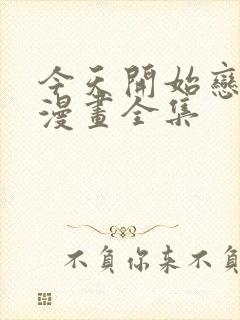 今天開始戀
漫畫全集
不負你来不負